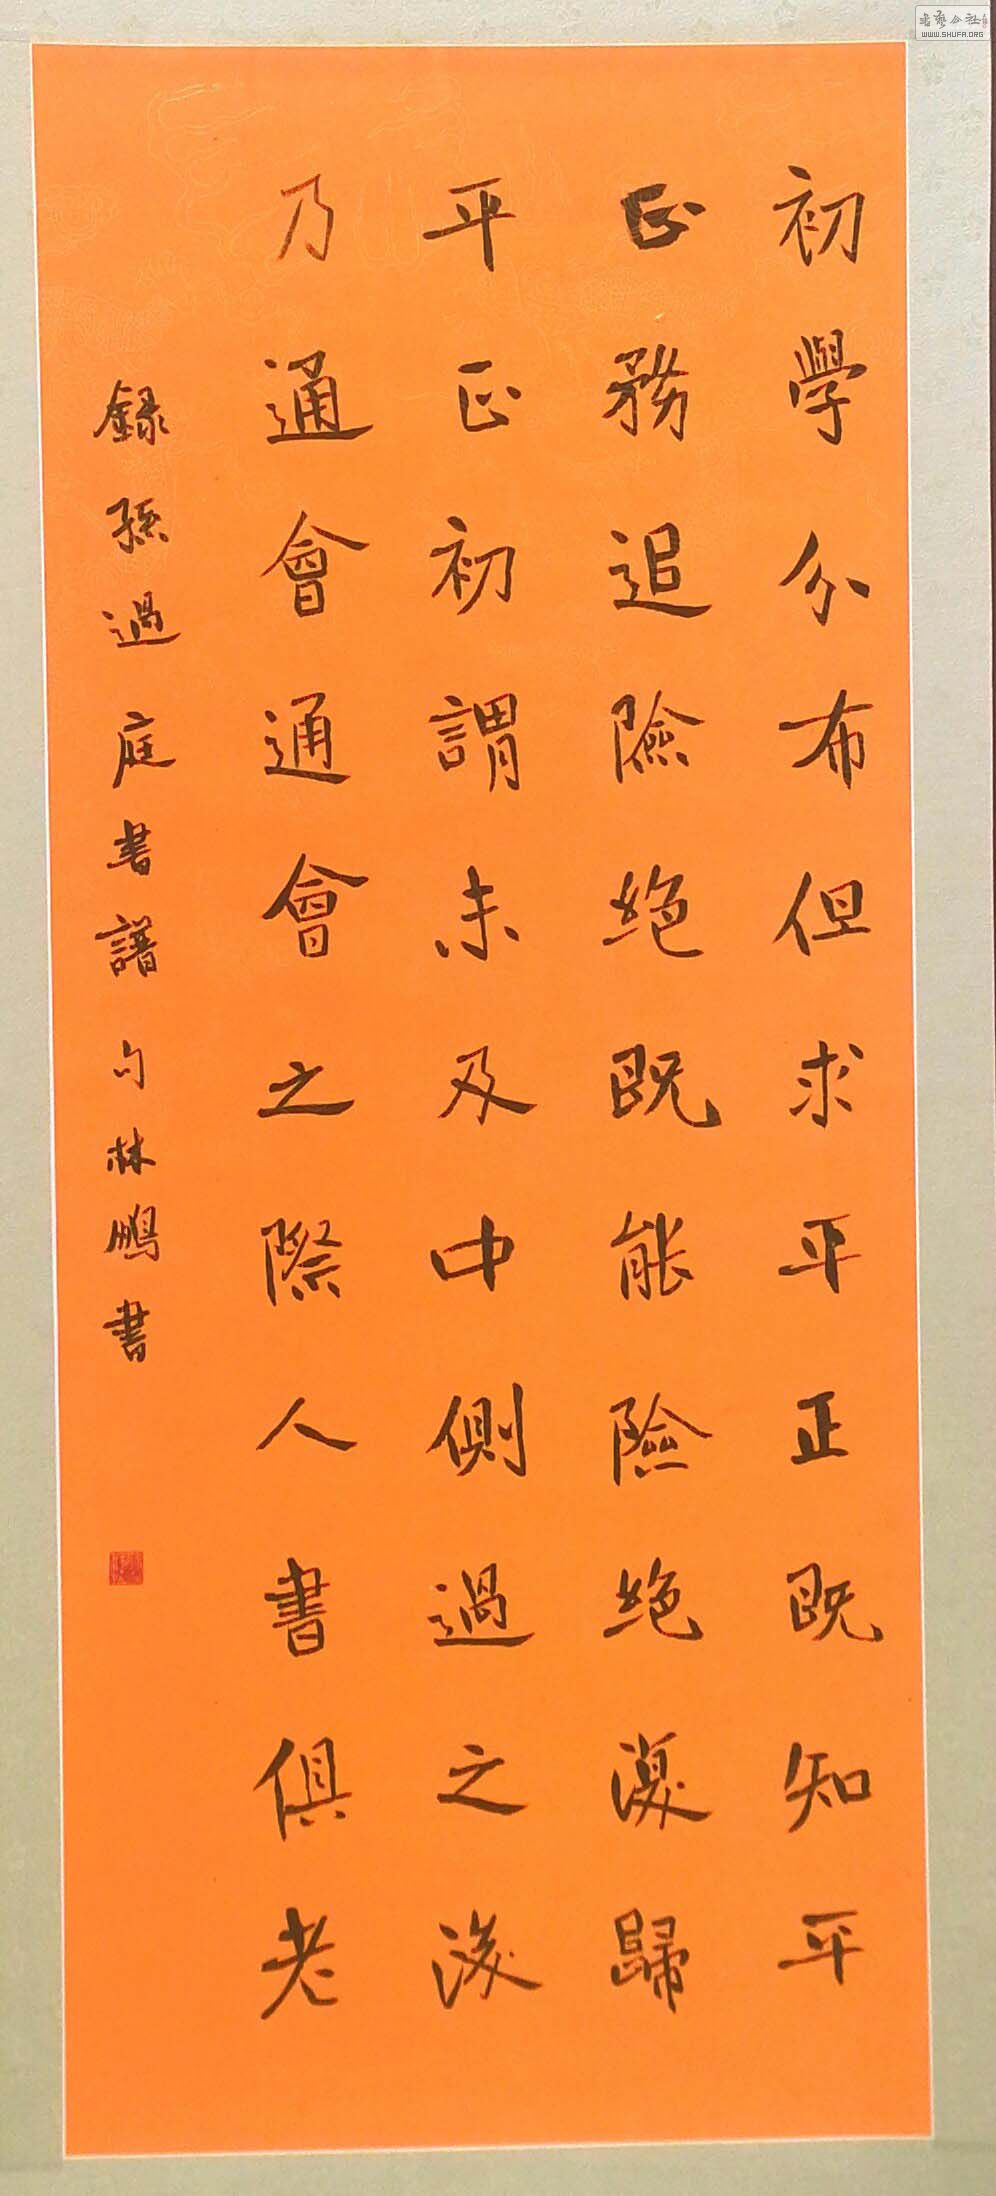 初學分布但求平正既知平
正務追險絕既能險絕復歸
平正初謂未及中側過之後
乃通會通會之際人書俱老
録孫過庭書譜句林鵬書
書藝公社
WWW.SHUFA.ORG